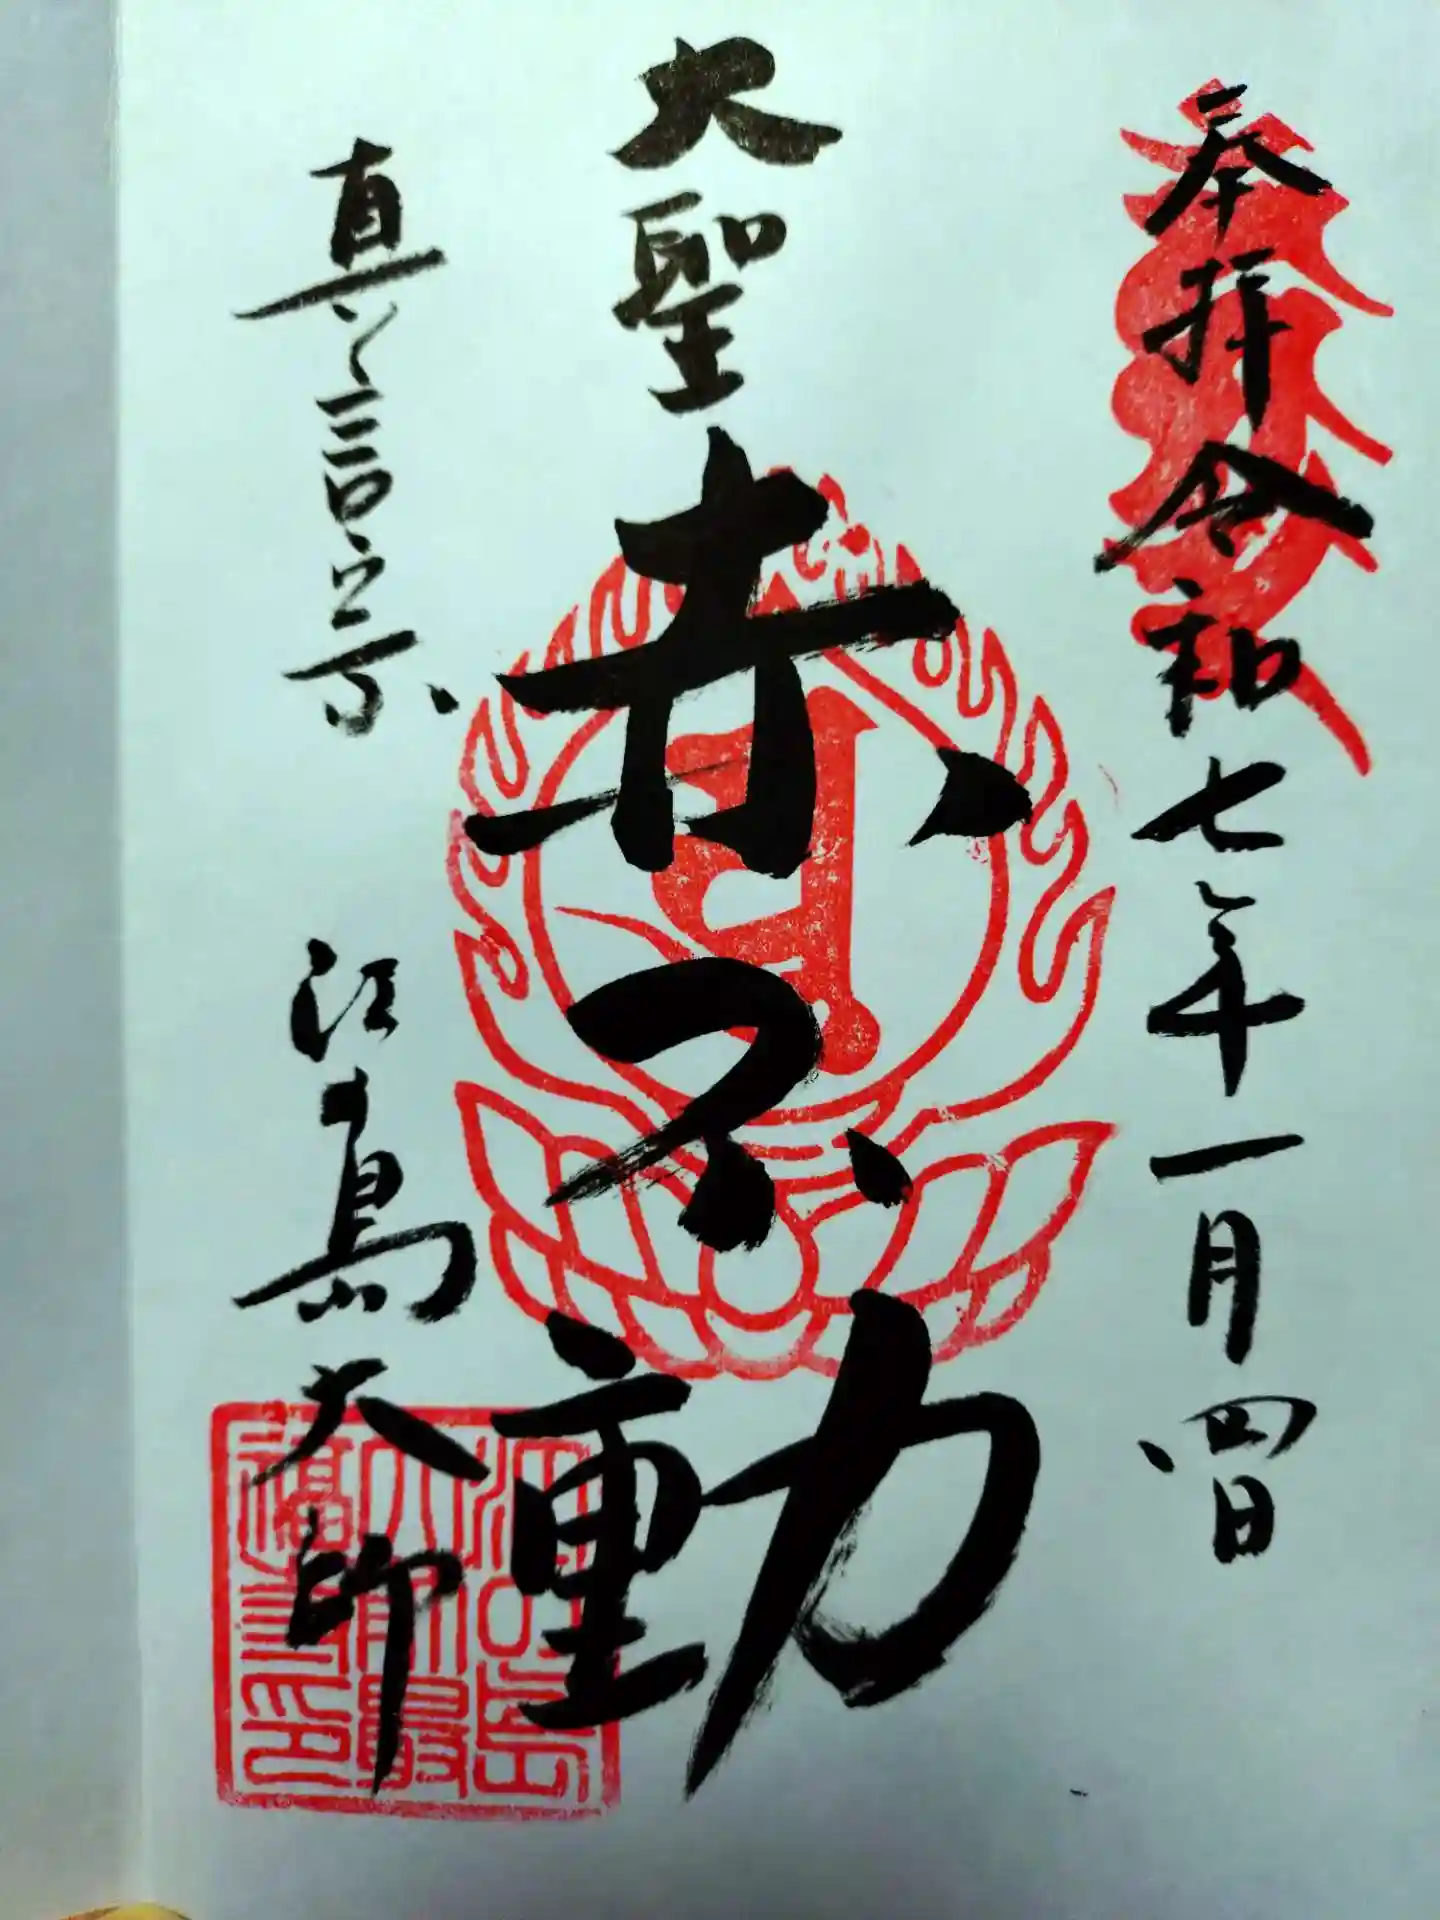 奉拝 令和七年一月四日
大聖 赤不動
真言宗
江島大師